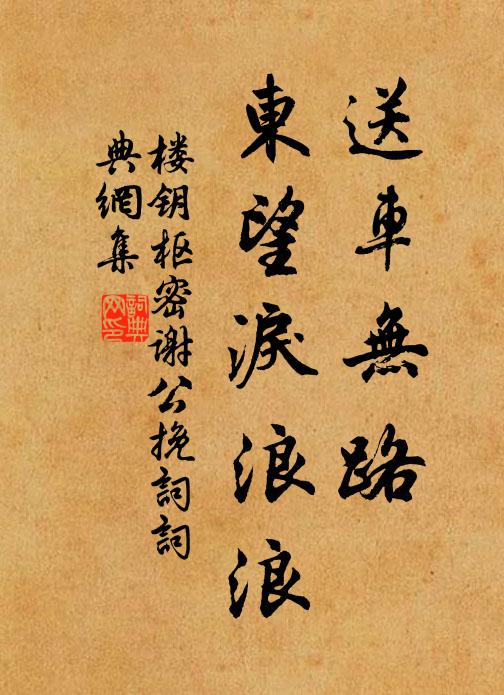 送車無路
東望淚浪浪
楼钥枢密谢公挽詞詞
典網集
詞典
网印